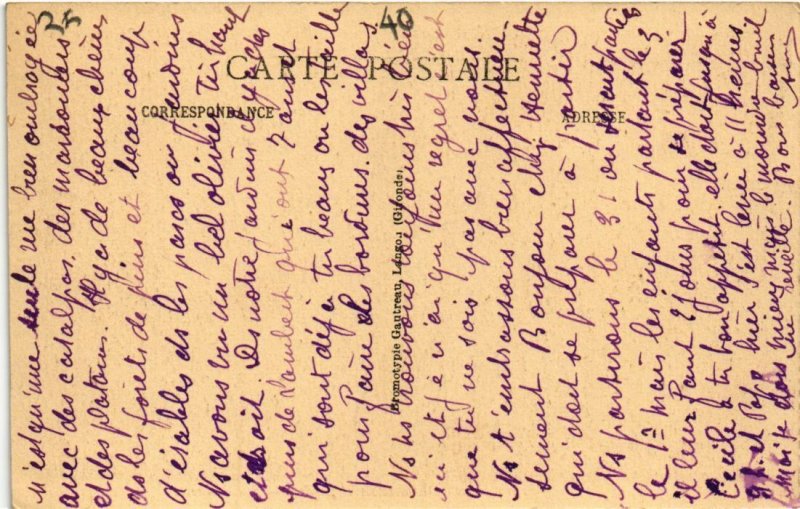 25
40
CARTE POSTALE
CORRESPONDANCE
ADRESSE
Phromotypie Gautreau, Langon (Gironde)
n'est qu'une seule rue bien ombragée
avec des catalpas, des marronniers
et des platanes. Il y a de beaux chênes
ds les forêts de pins et beaucoup
d'érables ds les parcs ou jardins
Ns avons vu un bel olivier très haut
et droit. Ds notre jardin cyprès
pins de Lambert qui ont 7 ans et
qui sont déjà très beaux on les taille
pour faire des bordures des villas
Ns ns trouvons toujours très bien
ici et je n'ai qu'un regret c'est
que tu ne sois pas avec nous.
Ns t'embrassons bien affectueu-
sement Bonjour chez Henriette
qui doit se préparer à partir
Ns partirons le 31 ou avant
le 1er mais les enfants partant le 3
il leur faut 2 jours pour se préparer
Cécile a très bon appétit elle dort jusqu'à
hier s'est levée à 11 heures
dors mieux mais le moindre bruit
me réveille. Bons baisers